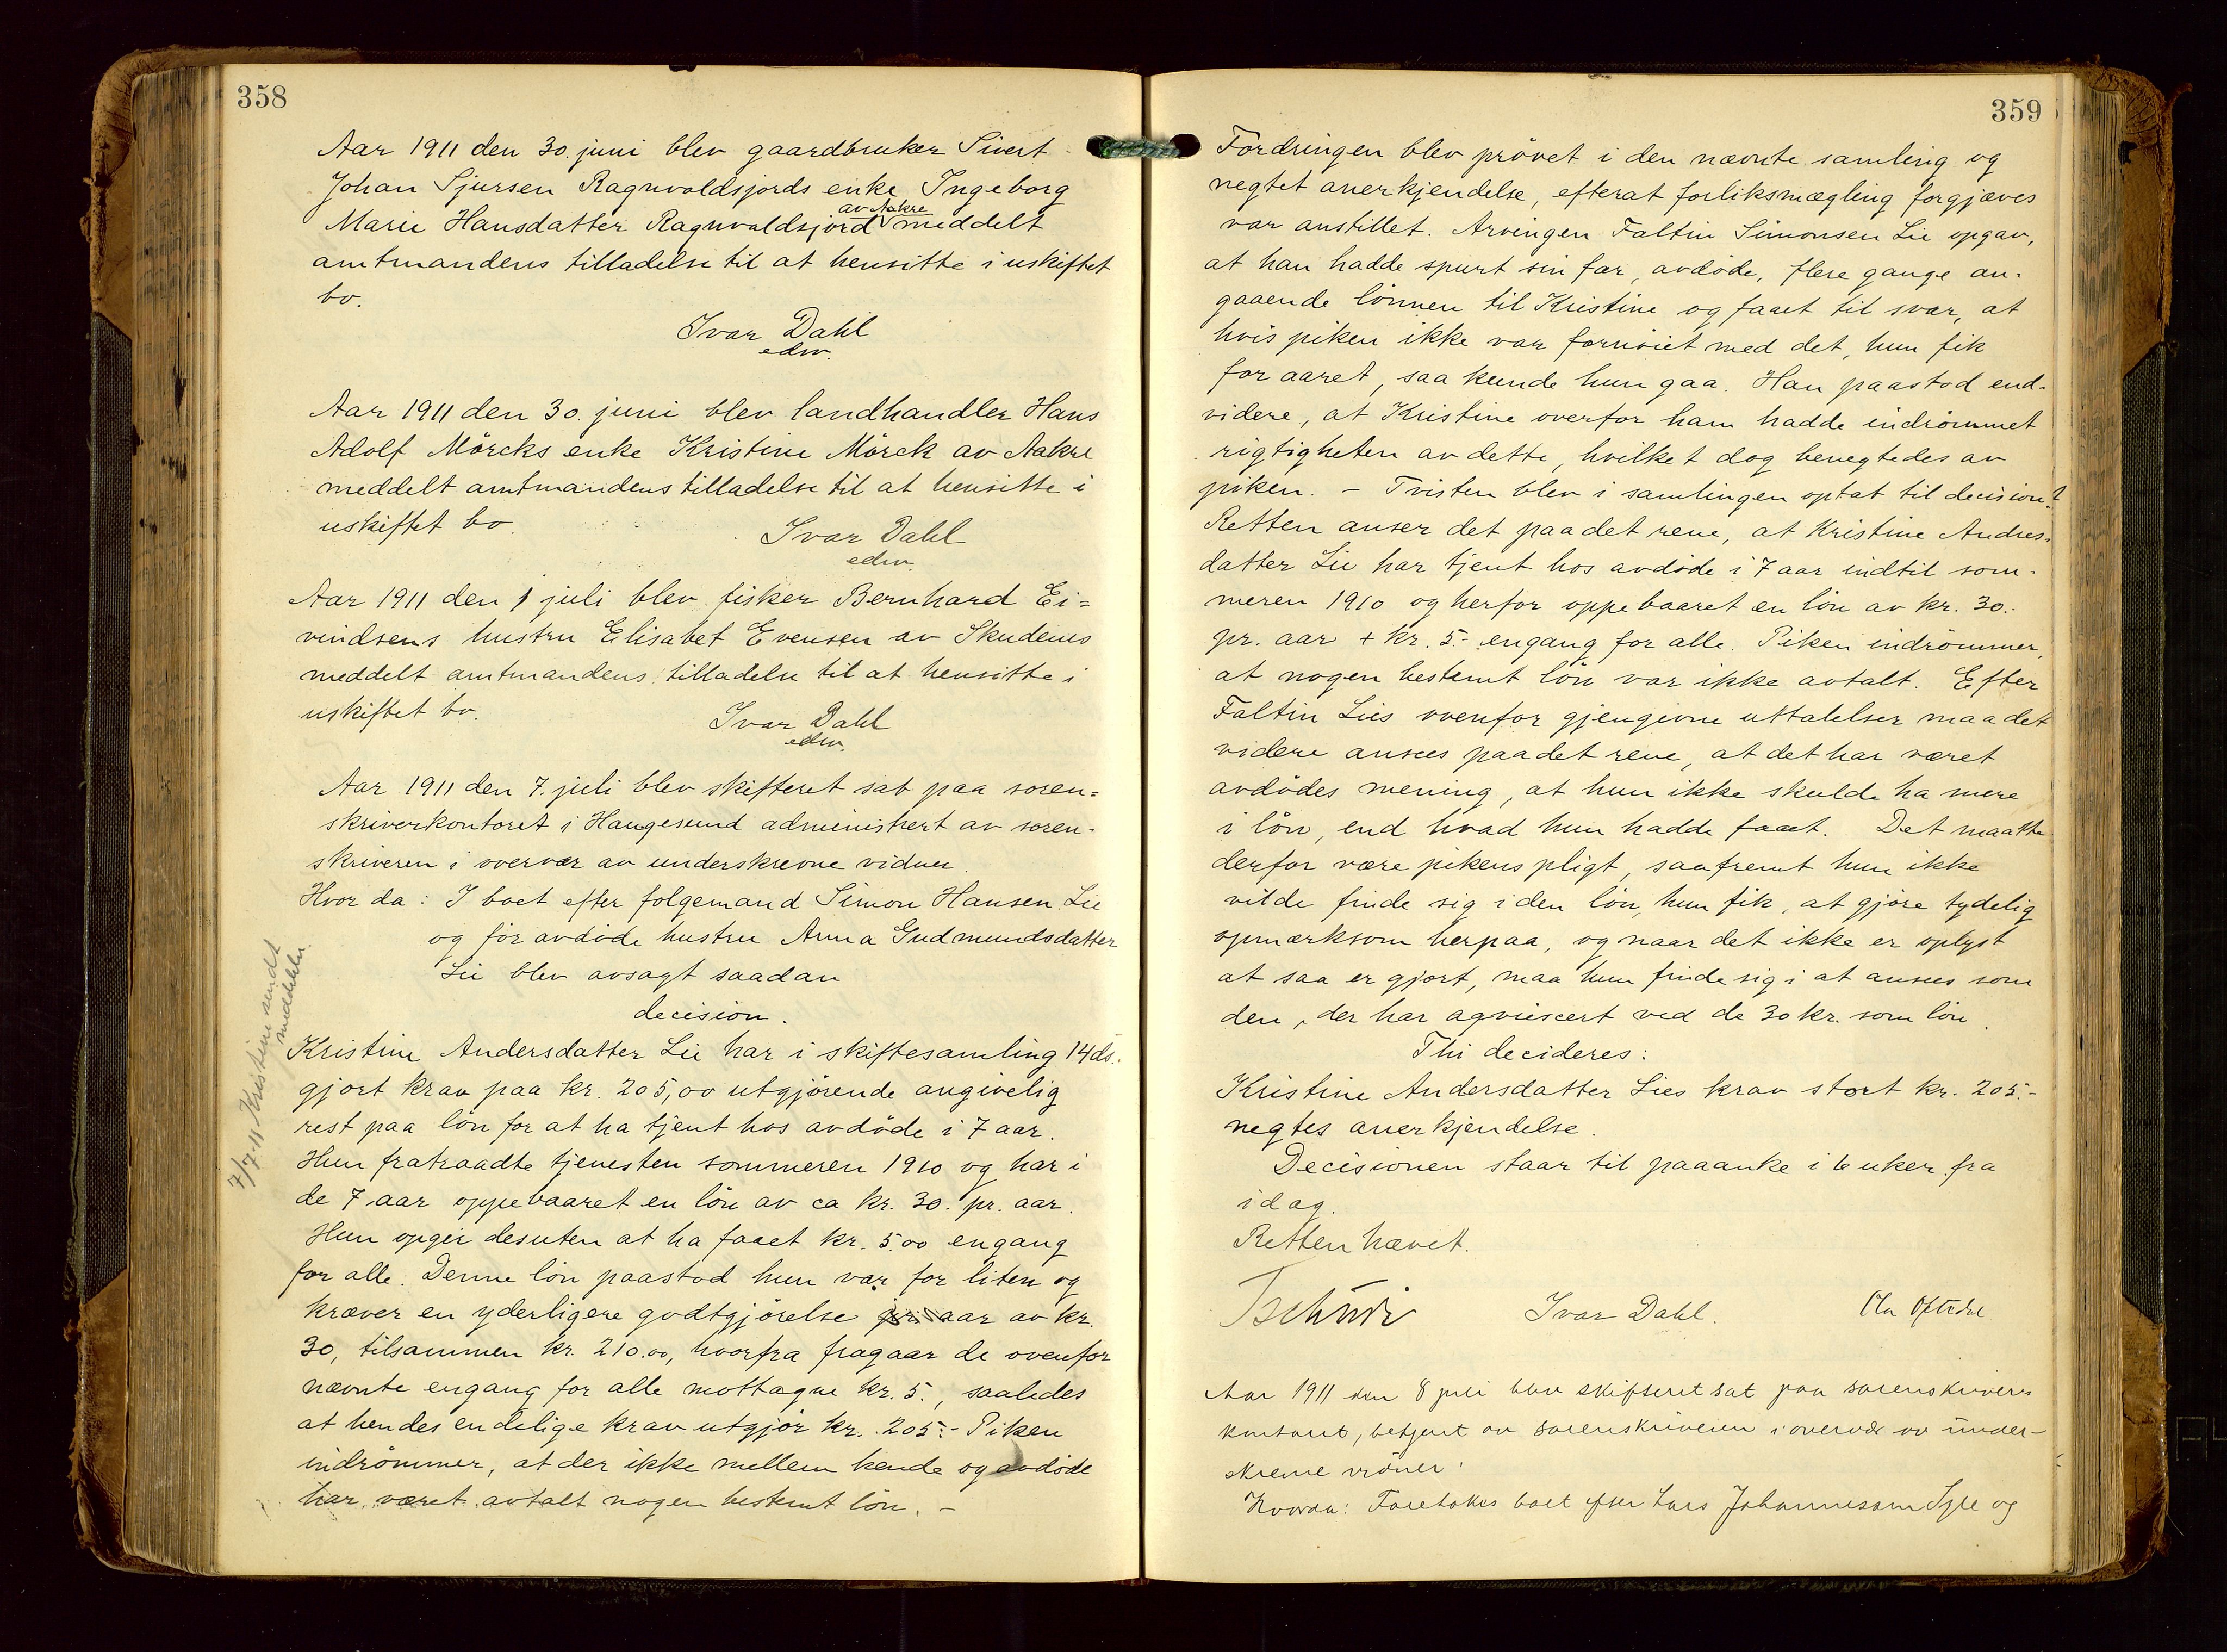 358
Aar 1911 den 30. juni blev gaardbruker Sivert
Johan Sjursen Ragnvaldsjords enke Ingeborg
av Aakre
Marie Hansdatter Ragnvaldsjord meddelt
amtmandens tilladelse til at hensitte i uskiftet
bo.
Ivar Dahl
edsv.
Aar 1911 den 30. juni blev landhandler Hans
Adolf Mörcks enke Kristine Mörck av Aakre
meddelt amtmandens tilladelse til at hensitte i
uskiftet bo.
Ivar Dahl
edsv.
Aar 1911 den 1 juli blev fisker Bernhard Ei=
vindsens hustru Elisabet Evensen av Skudenes
meddelt amtmandens tilladelse til at hensitte i
uskiftet bo.
Ivar Dahl
edsv.
Aar 1911 den 7. juli blev skifteret sat paa soren=
skriverkontoret i Haugesund administrert av soren-
skriveren i overvær av underskrevne vidner.
Hvor da: I boet efter følgemand Simon Hansen Lie
og før avdøde hustru Anna Gudmundsdatter
Lie blev avsagt saadan
decision.
7/7-11 Kristine sendt
meddelelse.
Kristine Andersdatter Lie har i skiftesamling 14 ds.
gjort krav paa kr. 205,00 utgjörende angivelig
rest paa lön for at ha tjent hos avdöde i 7 aar.
Hun fratraadte tjenesten sommeren 1910 og har i
de 7 aar oppebaaret en lön av ca kr. 30. pr. aar.
Hun opgir desuten at ha faaet kr. 5.00 engang
for alle. Denne lön paastod hun var for liten og
kræver en yderligere godtgjörelse pr. aar av kr.
30, tilsammen kr. 210.00, hvorfra fragaar de ovenfor
nævnte engang for alle mottagne kr. 5., saaledes
at hendes endelige krav utgjör kr. 205.- Piken
indrömmer, at der ikke mellem hende og avdöde
har været avtalt nogen bestemt lön. -
359
Fordringen blev prövet i den nævnte samling og
negtet anerkjendelse, efterat forliksmægling forgjæves
var anstillet. Arvingen Faltin Simonsen Lie opgav,
at han hadde spurt sin far, avdøde, flere gange an-
gaaende lönnen til Kristine og faaet til svar, at
hvis piken ikke var fornöiet med det, hun fik
for aaret, saa kunde hun gaa. Han paastod end-
videre, at Kristine overfor ham hadde indrömmet
rigtigheten av dette, hvilket dog benegtedes av
piken. - Tvisten blev i samlingen optat til decision.
Retten anser det paa det rene, at Kristine Anders-
datter Lie har tjent hos avdöde i 7 aar indtil som-
meren 1910 og herfor oppebaaret en lön av kr. 30.-
pr. aar + kr. 5.- engang for alle. Piken indrömmer,
at nogen bestemt lön var ikke avtalt. Efter
Faltin Lies ovenfor gjengivne uttalelser maa det
videre ansees paa det rene, at det har været
avdödes mening, at hun ikke skulde ha mere
i lön, end hvad hun hadde faaet. Det maatte
derfor være pikens pligt, saafremt hun ikke
vilde finde sig i den lön, hun fik, at gjöre tydelig
opmærksom herpaa, og naar det ikke er oplyst
at saa er gjort, maa hun finde sig i at ansees som
den, der har agviescert ved de 30 kr. som lön.
Thi decideres:
Kristine Andersdatter Lies krav stort kr. 205.-
negtes anerkjendelse.
Decisionen staar til paaanke i 6 uker fra
idag.
Retten hævet.
Ivar Dahl.
Aar 1911 den 8 juli blev skifteret sat paa sorenskriver
kontoret, betjent av sorenskriveren i overvær av under-
skrevne vidner.
Hvorda: Foretokes boet efter Lars Johannessen og